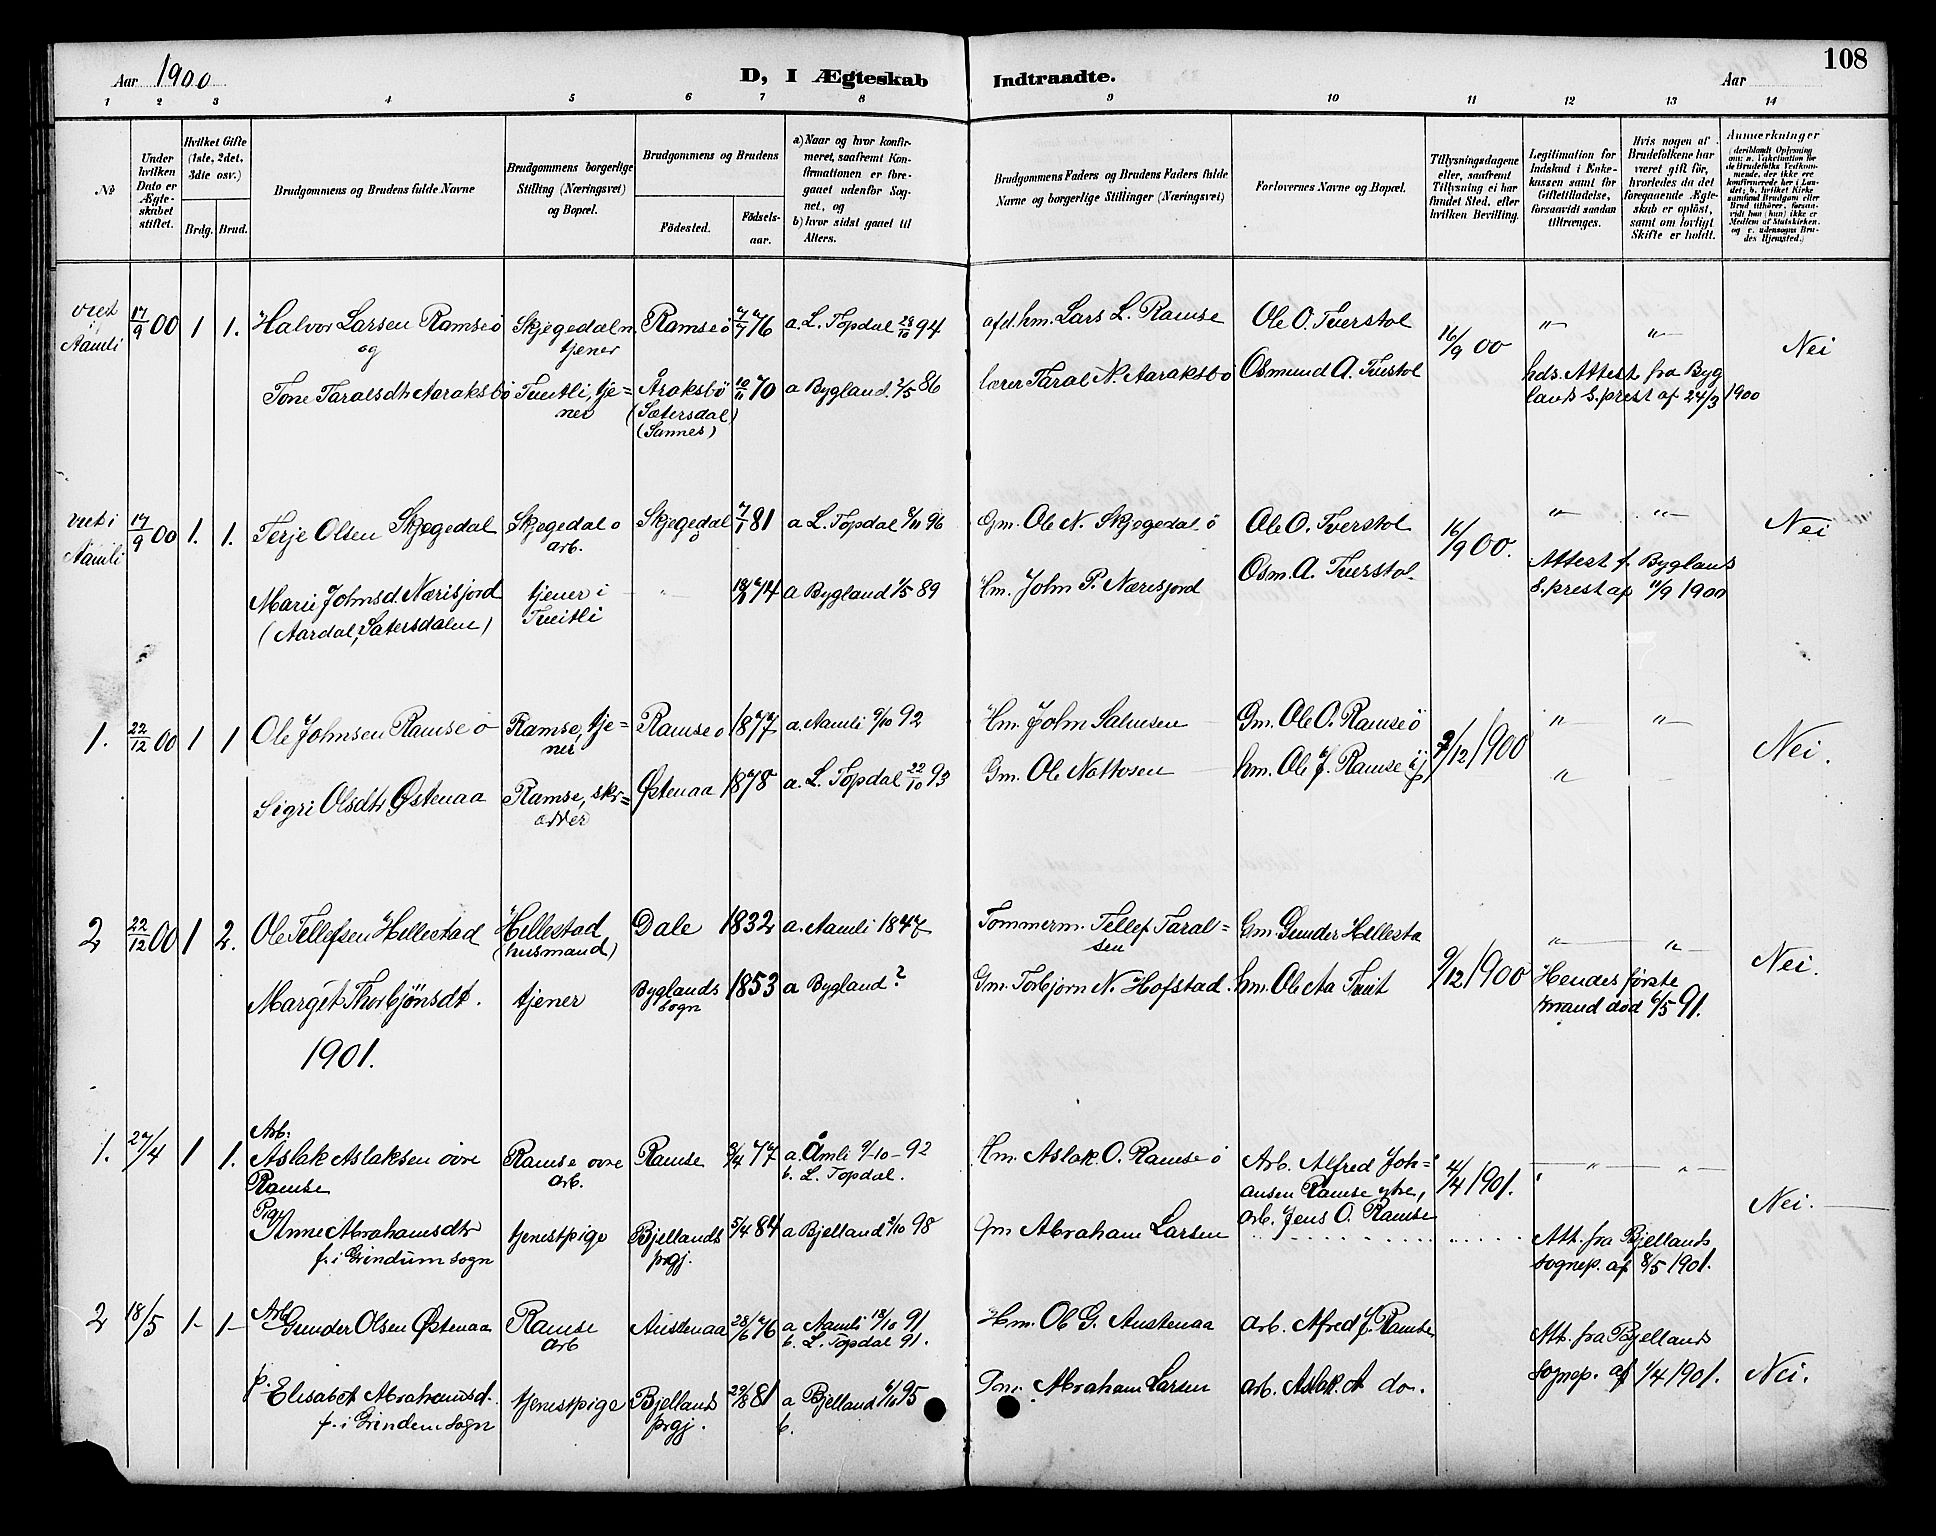 Aar 1900
D, I Ægteskab Indtraadte.
Aar
108
1 2 3 4 5 6 7 8 9 10 11 12 13 14
No
Under hvilken Dato er Ægteskabet stiftet.
Hvilket Gifte (1ste, 2det, 3die osv.)
Brdg. Brud.
Brudgommens og Brudens fulde Navne
Brudgommens borgerlige Stilling (Næringsvei) og Bopæl.
Brudgommens og Brudens
Födested.
Födselsaar.
a) Naar og hvor konfirmeret, saafremt Konfirmationen er foregaaet udenfor Sognet, og
b) hvor sidst gaaet til Alters.
Brudgommens Faders og Brudens Faders fulde Navne og borgerlige Stillinger (Næringsvei)
Forlovernes Navne og Bopæl.
Tillysningsdagene eller, saafremt Tillysning ei har fundet Sted. efter hvilken Bevilling.
Legitimation for Indskud i Enkekassen samt for Giftetilladelse, forsaavidt saadan tiltrænges.
Hvis nogen af Brudefolkene har været gift för, hvorledes da det foregaaende Ægteskab er oplöst, samt om lovligt Skifte er holdt.
Anmærkninger
viet i Aamli 17/9 00 1 1. Halvor Larsen Ramse ö Skjegedal n. tjener Ramse ö 7/7 76 a. L. Topdal 28/10 94 afd. hm. Lars L. Ramse Ole O. Tverstøl 16/9 00 " " Nei
og
Tone Taralsdtr Aaraksbö Tveitli, tjener Åraksbö (Sætersdal) (Sannes) 10/11 70 a Bygland 2/5 86 lærer Taral N. Aaraksbö Osmund A. Tverstol hds. Attest fra Byglands S.prest af 24/3 1900
viet i Aamli 17/9 00 1. 1. Terje Olsen Skjegedal Skjegedal ö arb. Skjegedal ö 7/1 81 a L. Topdal 8/11 96 Gm. Ole N. Skjegedal ö Ole O. Tverstol 16/9 00. " " Nei
Marie Johnsd. Nærisjord (Aardal, Sætersdalen) tjener i Tveitli " 74 a Bygland 1/5 89 Hm. John P. Nærisjord Osm. A. Tverstol. Attest f. Byglands S.prest af 11/9 1900
1. 22/12 00 1 1 Ole Johnsen Ramse ö Ramse, tjener Ramse ö 1877 a. Aamli 9/10 92 Hm. John Salvesen Gm. Ole O. Ramse ö 2/12 1900 " " Nei.
Sigri Olsdtr Østenaa Ramse, Østenaa 1878 a. L. Topdal 22/10 93 Gm. Ole Nottosen hm. Ole J. Ramse "
2 22/12 00 1 2. Ole Tellefsen Hellestad Hellestad (husmand) Dale 1832 a. Aamli 1847 Tommerm. Tellef Taralsen Gm. Gunder Hellesta 9/12 1900 " " Nei.
Margit Thorbjönsdt. tjener Byglands Sogn 1853 a Bygland? Gm. Torbjørn N. Hofstad. hm. Ole Aa Tveit Hendes første mand død 6/5 91.
1901.
1. 27/4 1 1. Arb. Aslak Aslaksen övre Ramse Ramse øvre arb. Ramse 9/4 77 a. Åmli 9/10 92 b. L. Topdal. Hm. Aslak O. Ramse ö Arb. Alfred Johansen Ramse ytre, arb. Jens O. Ramse 4/4 1901. " " Nei.
Pige Anne Abrahamsdtr f. i Grindum sogn tjenestpige Bjellands prgj. 5/4 84 a Bjelland 2/10 98 Gm Abraham Larsen Att. fra Bjellands sognep. af 8/5 1901.
2 18/5 1 1 Arb. Gunder Olsen Østenaa Ramse arb Austenaa 28/6 76 a Aamli 18/10 91 b. L. Topdal 91. Hm. Ole G. Austenaa arb. Alfred J. Ramse Att. fra Bjellands sognep. af 1/4 1901. Nei.
p. Elisabet Abrahamsd. f. i Grindem sogn tjenestpige Bjellands prgj. 29/8 81 a Bjelland 6/10 95 b. Gm. Abraham Larsen arb. Aslak A do.